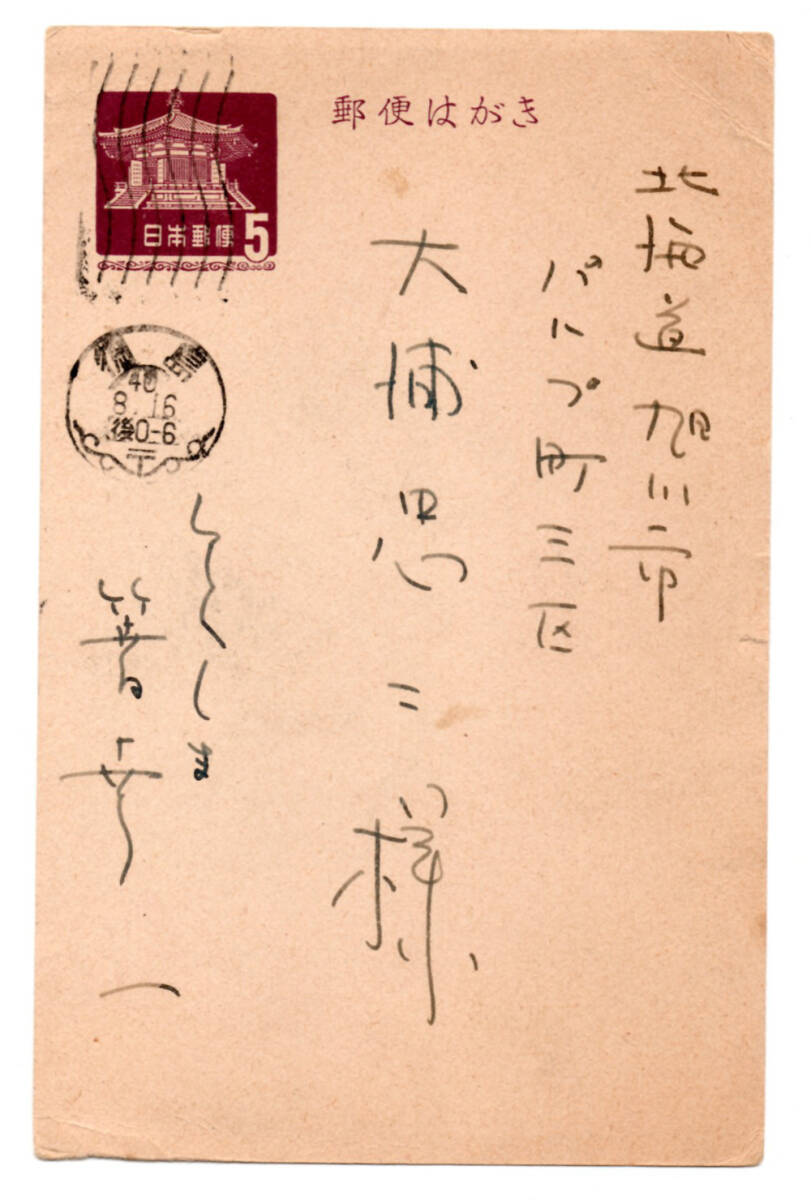 郵便はがき
日本郵便 5
徳島
40
8.16
後0-6
北海道旭川市
パルプ町三区
大浦忠二様
とくしま
一